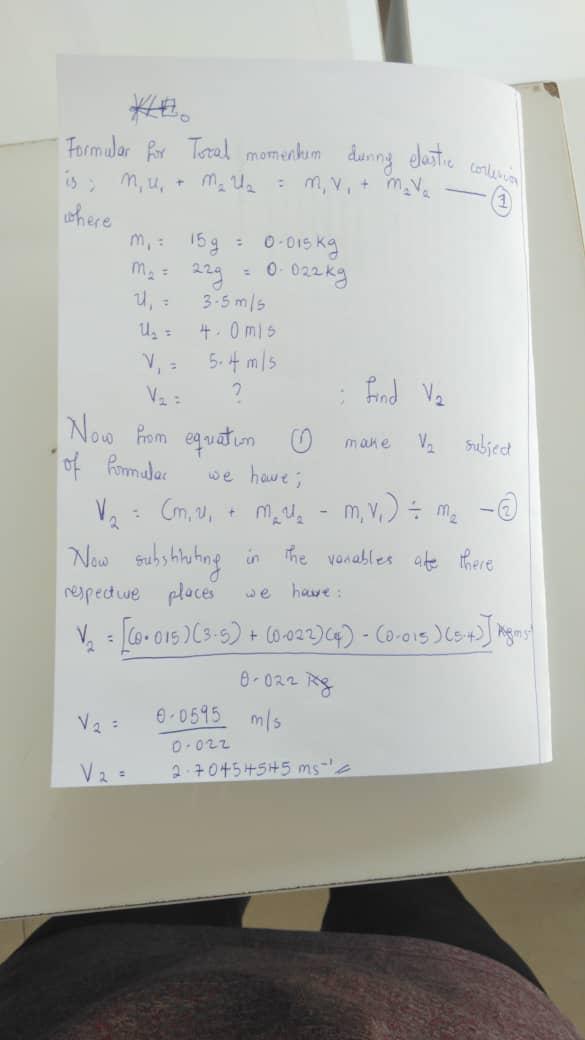 Formular for Total momentum during elastic collision
is ; m₁u₁ + m₂u₂ = m₁v₁ + m₂v₂ —— ①
where
m₁ = 15g = 0.015kg
m₂ = 22g = 0.022kg
u₁ = 3.5m/s
u₂ = 4.0m/s
v₁ = 5.4m/s
v₂ = ? ; find v₂
Now from equation ① make v₂ subject
of formular we have;
V₂ = (m₁u₁ + m₂u₂ - m₁v₁) ÷ m₂ — ②
Now substituting in the variables at there
respective places we have:
V₂ = [(0.015)(3.5) + (0.022)(4) - (0.015)(5.4)] kgms⁻¹
0.022 kg
V₂ = 0.0595 m/s
0.022
V₂ = 2.70454545 ms⁻¹